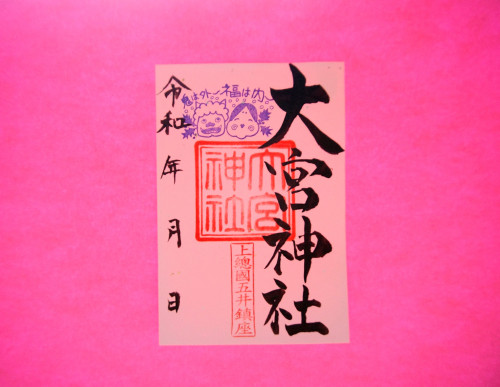 大宮神社
鬼は外 福は内
大宮神社
上總國五井鎮座
令和 年 月 日